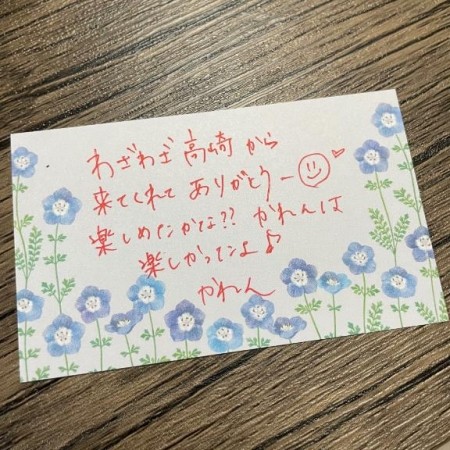 わざわざ高崎から
来てくれてありがとうー
楽しめたかな?? かれんは
楽しかったよ♪
かれん